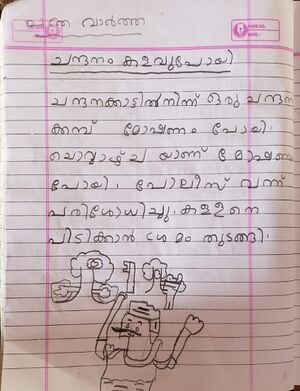 പത്ര വാർത്ത
PAGE NO.
DATE
ചന്ദനം കളവുപോയി
ചന്ദനക്കാട്ടിൽനിന്ന് ഒരു ചന്ദന
ക്കമ്പ് മോഷണം പോയി.
ചൊവ്വാഴ്ച യാണ് മോഷണം
പോയി. പോലീസ് വന്ന്
പരിശോധിച്ചു. കള്ളനെ
പിടിക്കാൻ ശ്രമം തുടങ്ങി.